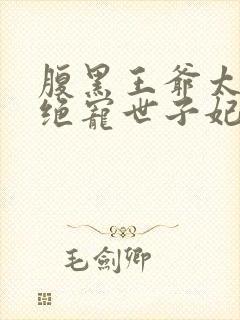 腹黑王爷太
绝宠世子妃
毛劍卿